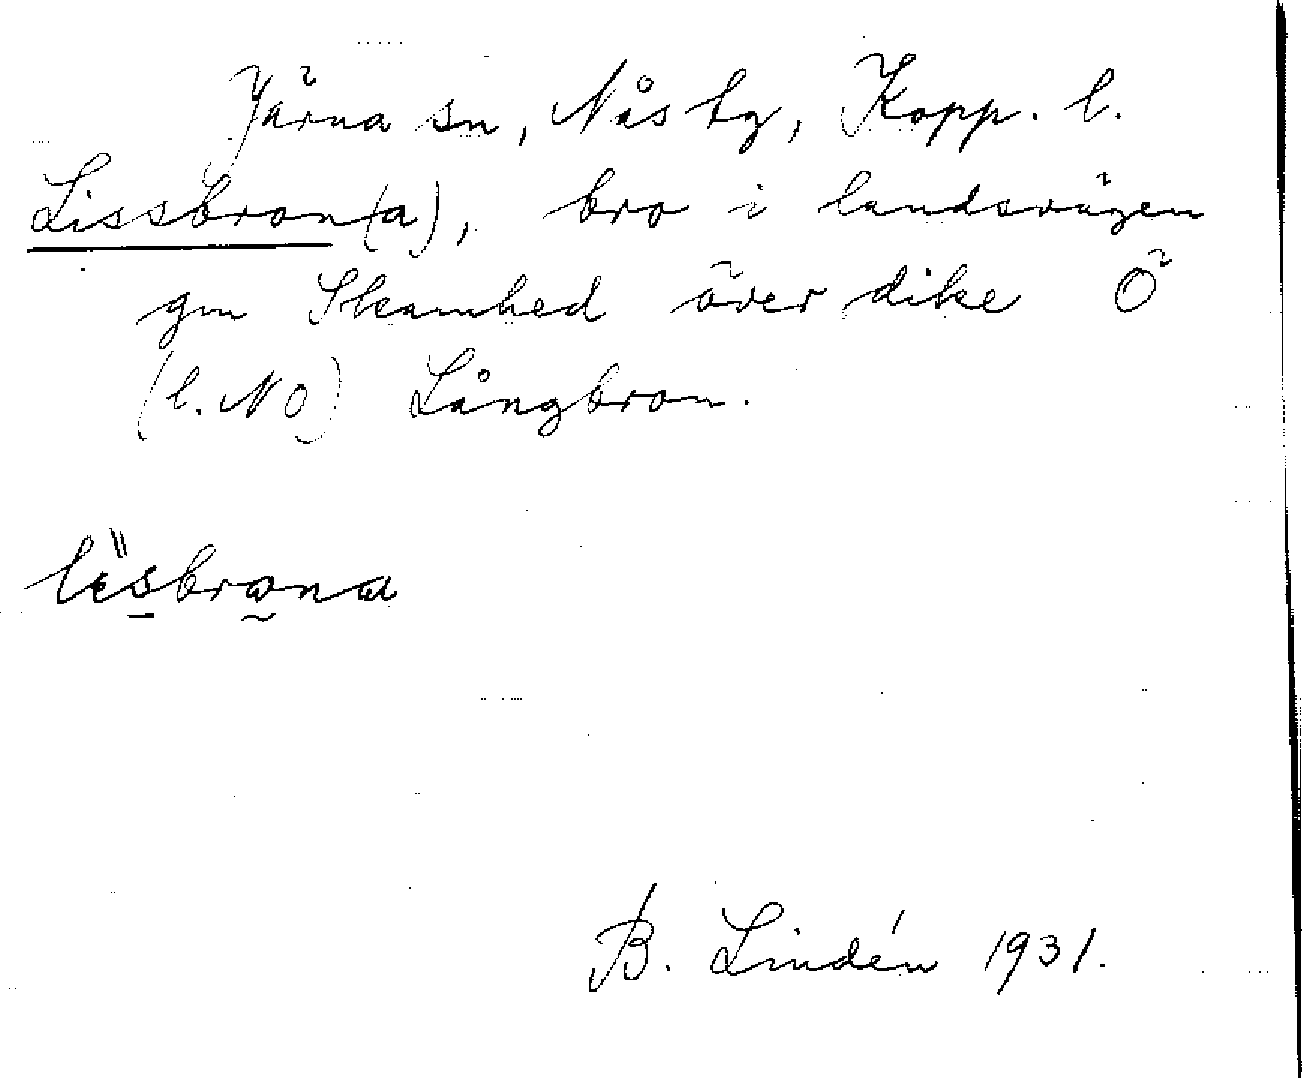 Järna sn, Nås tg, Kopp. l.
Lissbron(a), bro i landsvägen
gm Skamhed över dike Ö
(l. NO) Långbron.
lisbrona
B. Lindén 1931.